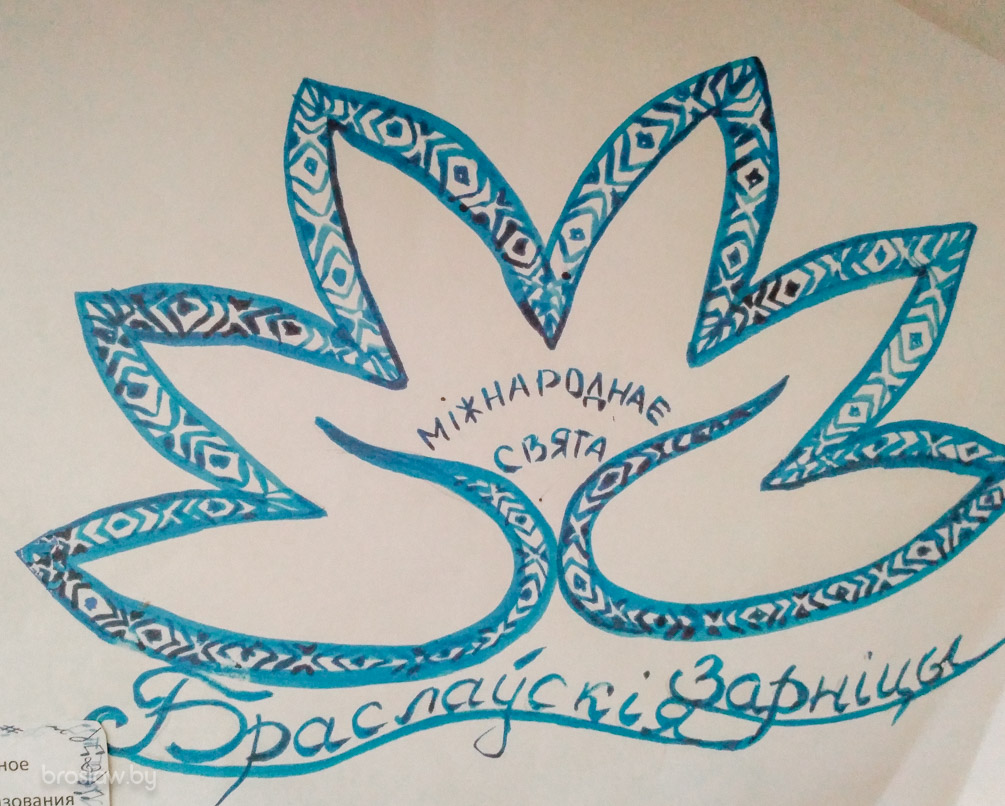 МІЖНАРОДНАЕ
СВЯТА
Браслаўскія Зарніцы
ное
зования
braslaw.by